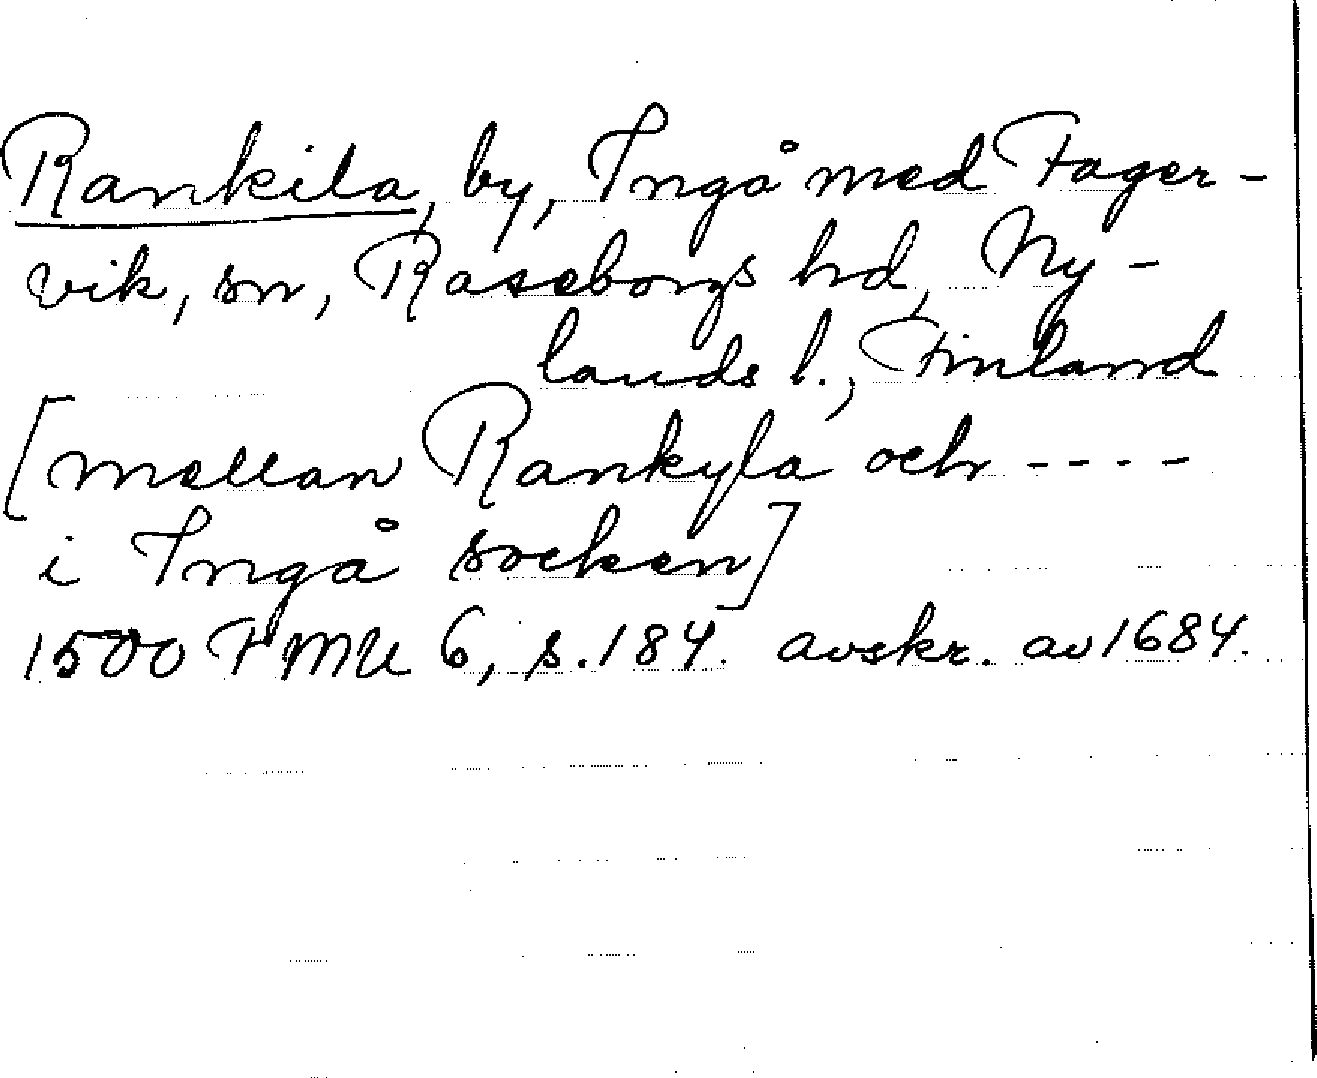 Rankila, by, Ingå med Fager-
vik, sn, Raseborgs hd, Ny-
lands l., Finland
[mellan Rankyla och ----
i Ingå socken]
1500 FMU 6, s. 184. avskr. av 1684.